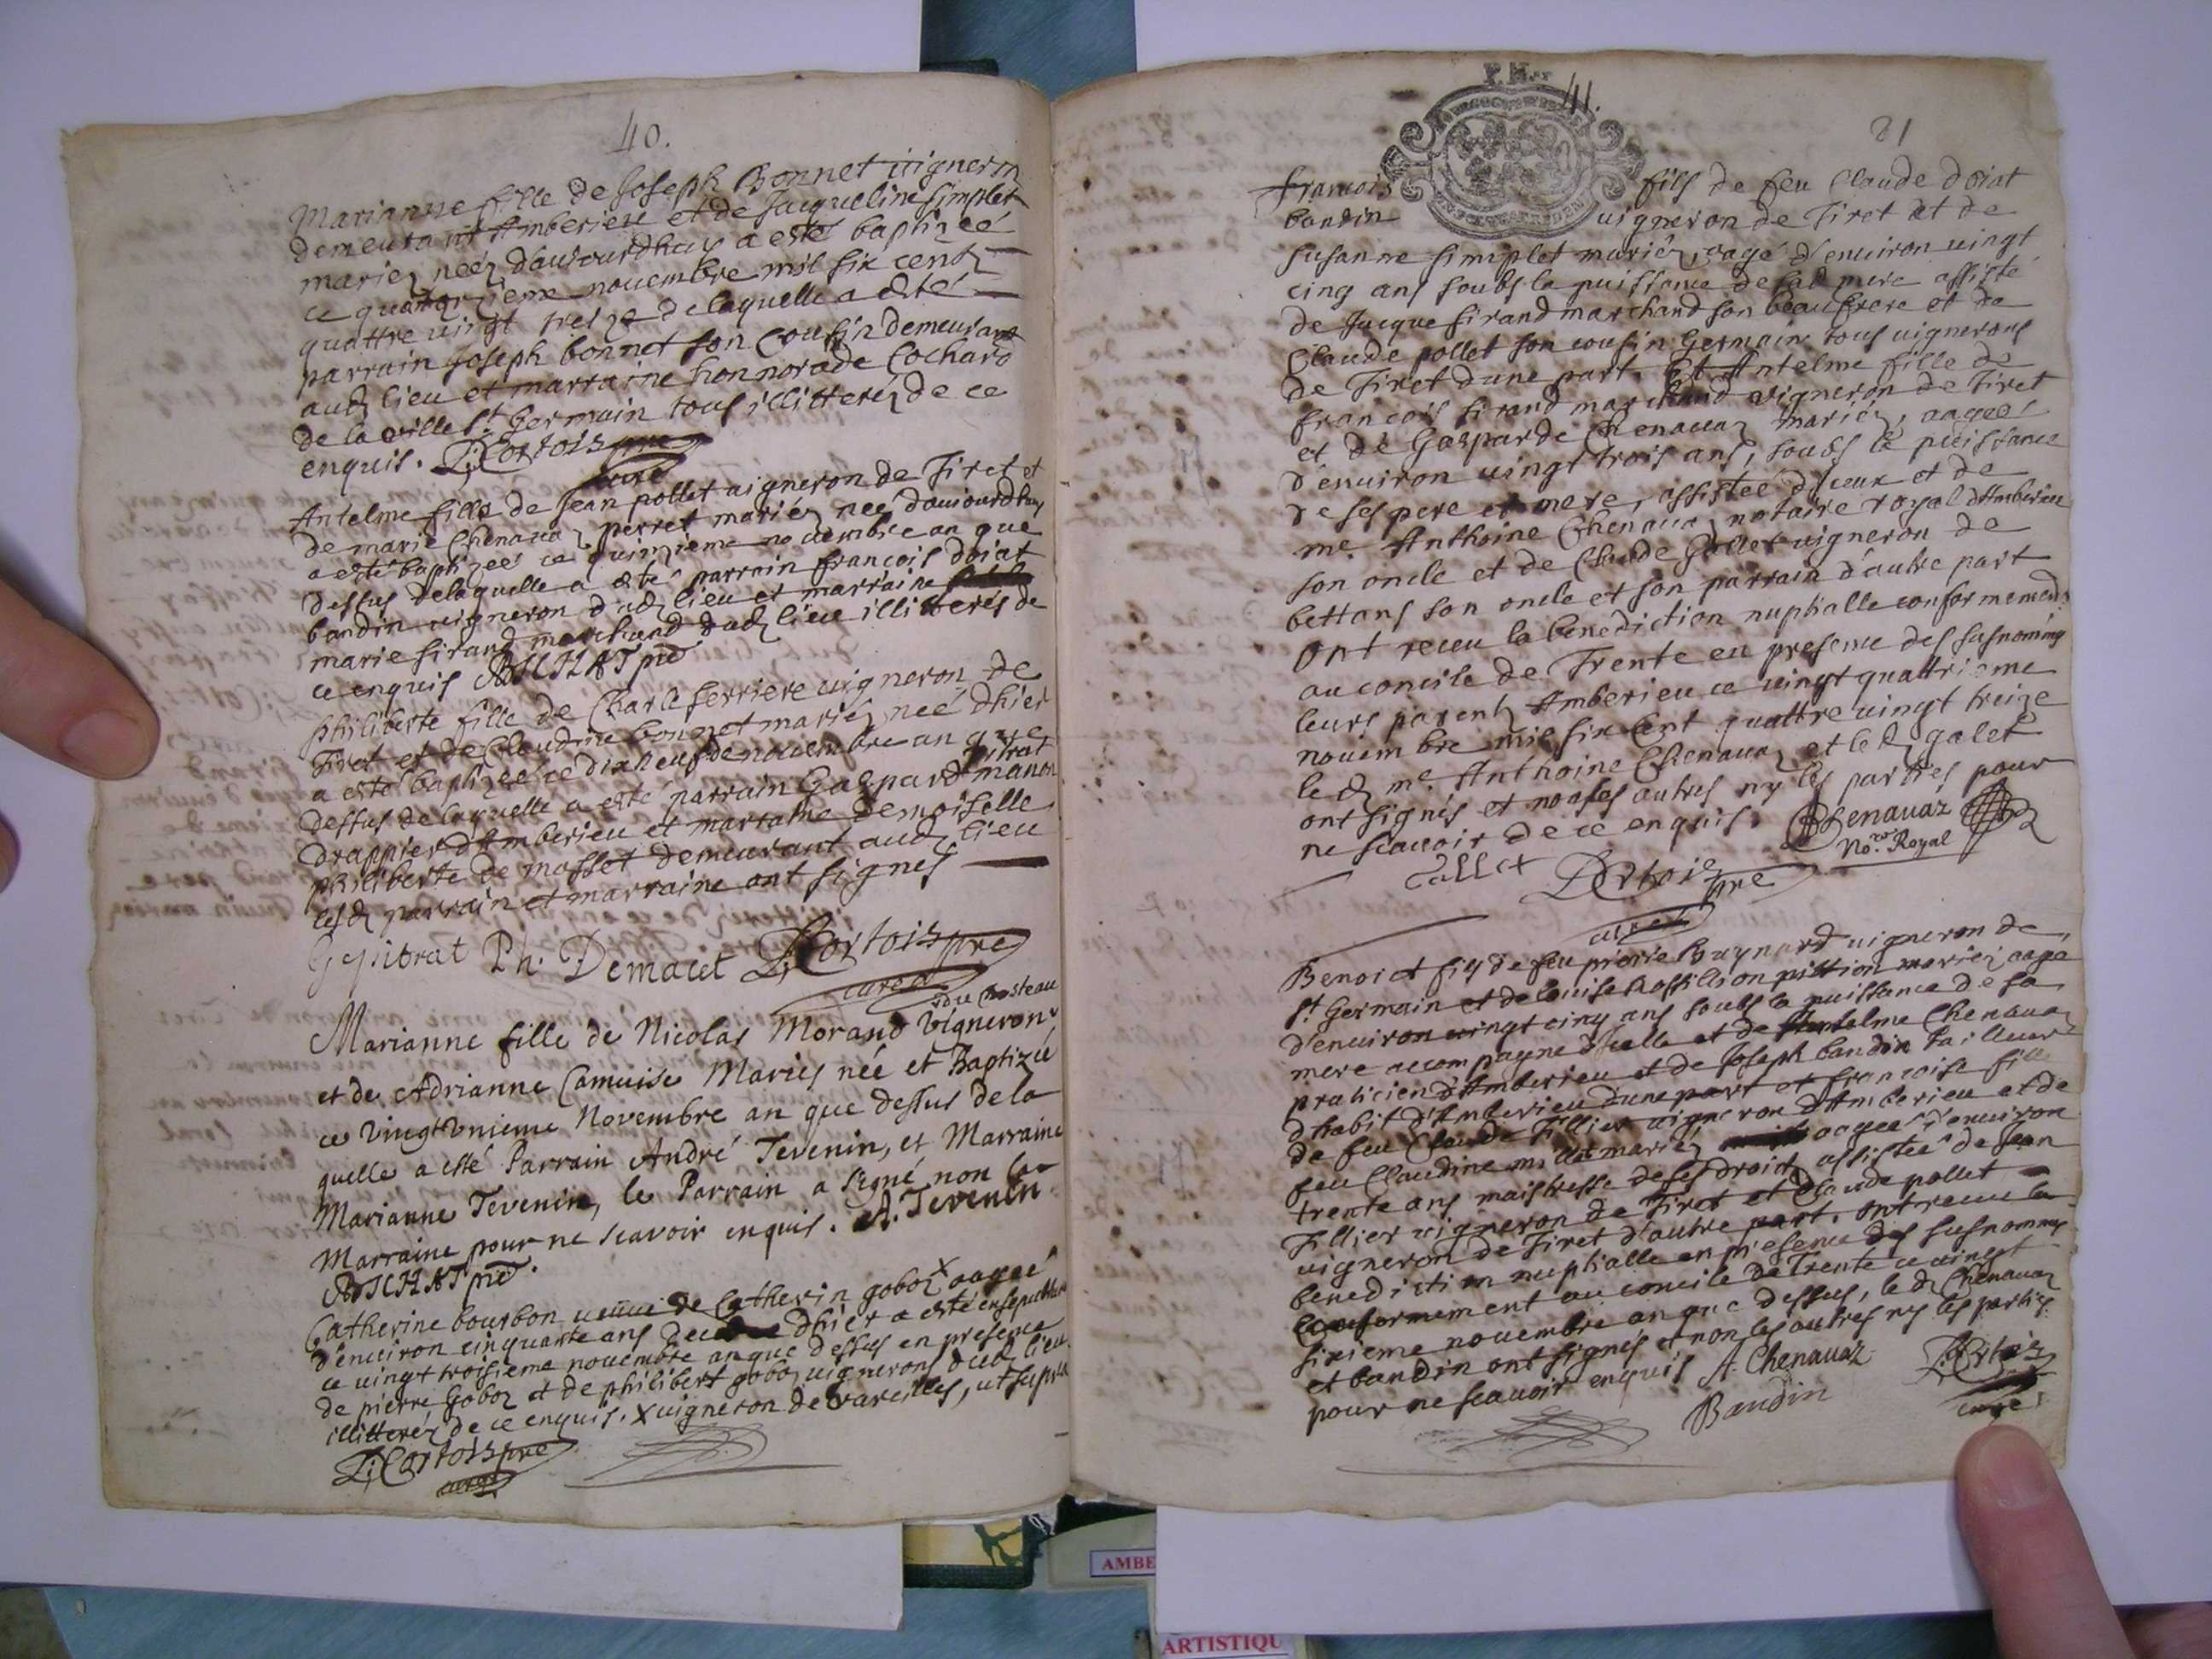 40.
Marianne fille de Joseph Bonnet vigneron
demeurant Amberieu et de Jacqueline simplet
mariez neéz daujourdhuy a esté baptizeé
ce quatorzieme nouembre mil six centz
quattre vingt treize delaquelle a esté
parrain Joseph bonnet son cousin demeurant
audz lieu et marraine honnorade Cochard
de la ville St Germain tous illitteréz de ce
enquis. Cortois pre
curé
Antelme fille de Jean pollet uigneron de Tiret et
de marie Chenauaz perret mariéz neé daujourdhuy
a esté baptizeé ce quinzieme nouembre an que
dessus delaquelle a esté parrain francois doiat
bandin uigneron dudz lieu et marraine
marie sirand marchand dudz lieu illitterés de
ce enquis BICHAT pre
philiberte fille de Charle ferriere uigneron de
Tiret et de Claudine bonnet mariéz neé dhier
a esté baptizeé ce dixneuf de nouembre an que
dessus de laquelle a esté parrain Gaspard manon
pitrat
drappier d'Amberieu et marraine demoiselle
philiberte de masset demeurant audz lieu
lesdz parrain et marraine ont signes
G pitrat Ph. Demacet Cortois pre
curé
Marianne fille de Nicolas Morand Vigneron
du chasteau
et de Adrianne Camuise Mariés née et Baptizée
ce vingt vnieme Novembre an que dessus de la
quelle a esté Parrain André Tevenin, et Marraine
Marianne Tevenin, le Parrain a signé non la
Marraine pour ne scavoir enquis. A. Tevenin
BICHAT pre.
Catherine bourbon ueuue de Catherin goboz x aageé
d'enuiron cinquante ans dhier a esté ensepulturé
ce uingt troisieme nouembre an que dessus en presence
de pierre goboz et de philibert goboz uignerons dudz lieu
illitteréz de ce enquis. x uigneron de vareilles, ut supra
Cortois pre
curé
P. H.
41.
21
francois fils de feu Claude doiat
bandin uigneron de Tiret et de
susanne simplet mariéz, aagé d'enuiron uingt
cinq ans soubs la puissance de sad mere assisté
de Jacque sirand marchand son beaufrere et de
Claude pollet son cousin germain tous uignerons
de Tiret dune part. Et Antelme fille de
francois sirand marchand uigneron de Tiret
et de Gasparde Chenauaz mariéz, aageé
d'enuiron uingt trois ans, soubs la puissance
de ses pere et mere, assisteé d'iceux et de
me. Anthoine Chenauaz notaire royal d'Amberieu
son oncle et de Claude Gallet uigneron de
bettans son oncle et son parrain d'autre part
Ont receu la benediction nuptialle conformement
au concile de Trente en presence des susnommés
leurs parentz Amberieu ce uingt quattrieme
nouembre mil six cent quattre uingt treize
ledz me. Anthoine Chenauaz et ledz galet
ont signés et non les autres ny les parties pour
ne scauoir de ce enquis. Chenauaz
No.re Royal
Gallet Cortois pre
curé
Benoict fils de feu pierre Buynard uigneron de
St Germain et de louise Rossillion pittion mariéz aagé
d'enuiron uingt cinq ans soubs la puissance de sa
mere accompagné d'icelle et de Antelme Chenauaz
praticien d'Amberieu et de Joseph bandin tailleur
d'habit d'Amberieu dune part et francoise fille
de feu Claude Tillier uigneron d'Amberieu et de
feu Claudine millet mariéz aageé d'enuiron
trente ans maistresse de ses droictz assisteé de Jean
Tillier uigneron de Tiret et Claude pollet
uigneron de Tiret d'autre part. ont receu la
benediction nuptialle en presence des susnommes
conformement au concile de Trente ce uingt
sixieme nouembre an que dessus, le dz Chenauaz
et bandin ont signés et non les autres ny les parties
pour ne scauoir enquis A. Chenauaz Cortois
Bandin
curé
AMBE
ARTISTIQU